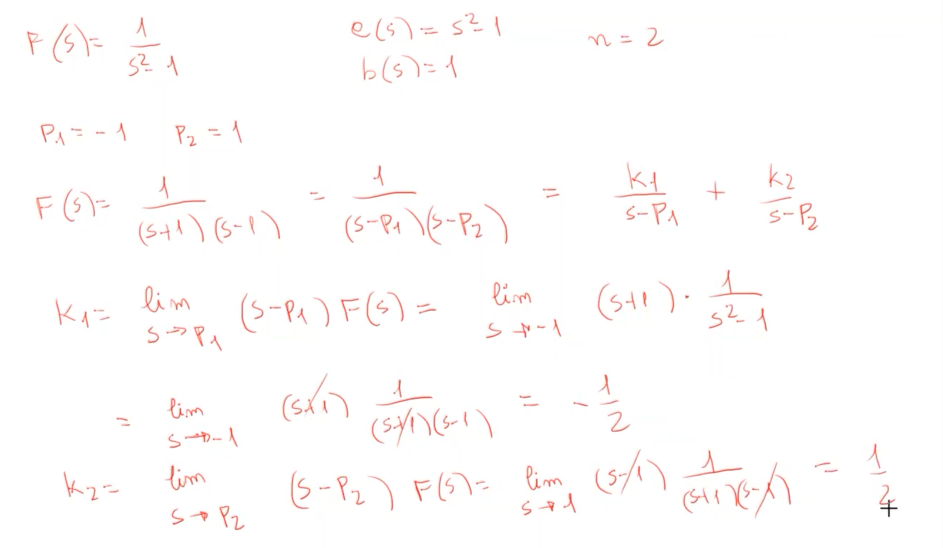 F(s) = 1/(s²-1)    e(s) = s²-1    n = 2
b(s) = 1
P₁ = -1    P₂ = 1
F(s) = 1/((s+1)(s-1)) = 1/((s-P₁)(s-P₂)) = k1/(s-P₁) + k2/(s-P₂)
K₁ = lim s→P₁ (s-P₁) F(s) = lim s→-1 (s+1) · 1/(s²-1)
= lim s→-1 (s+1) 1/((s+1)(s-1)) = -1/2
k₂ = lim s→P₂ (s-P₂) F(s) = lim s→1 (s-1) 1/((s+1)(s-1)) = 1/2